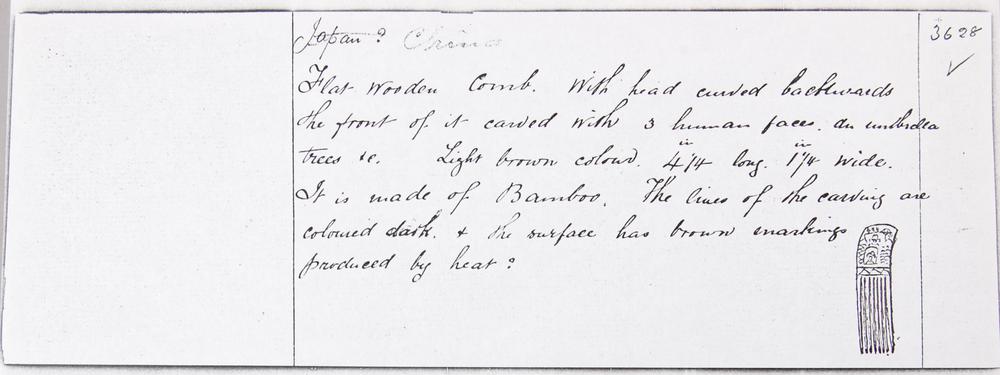 Japan? China
3628
Flat wooden Comb. With head curved backwards
the front of it carved with 3 human faces. an umbrella
trees &c. Light brown colour. 4 1/4 in long. 1 1/4 in wide.
It is made of Bamboo. The lines of the carving are
coloured dark. & the surface has brown markings
produced by heat?